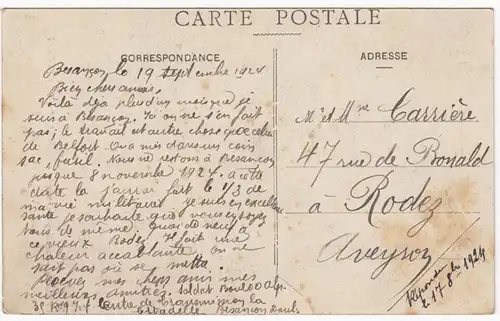 CARTE POSTALE
CORRESPONDANCE
Besançon le 19 septembre 1924
Bien chers amis.
Voilà déja plus d'un mois que je
suis à Besançon. Ici on ne s'en fait
pas; le travail est autre chose que celui
de Belfort. On a mis dans un coin
sac, fusil. Nous ne restons à Besançon
jusque 8 novembre 1924. a cette
date la j'aurai fait le 1/3 de
ma vie militaire. je suis en excellente
santé je souhaite que vous en soyez
tous de même. Quoi de neuf à
ce vieux Rodez. Il fait une
chaleur accablante on ne
sait pas où se mettre.
Recevez mes chers amis mes
meilleures amitiés. Soldat
Centre de la
Citadelle Besançon Doubs
ADRESSE
Mr et Mme Carrière
47 rue de Bonald
à Rodez
Aveyron
Répondu le
17 8 1924